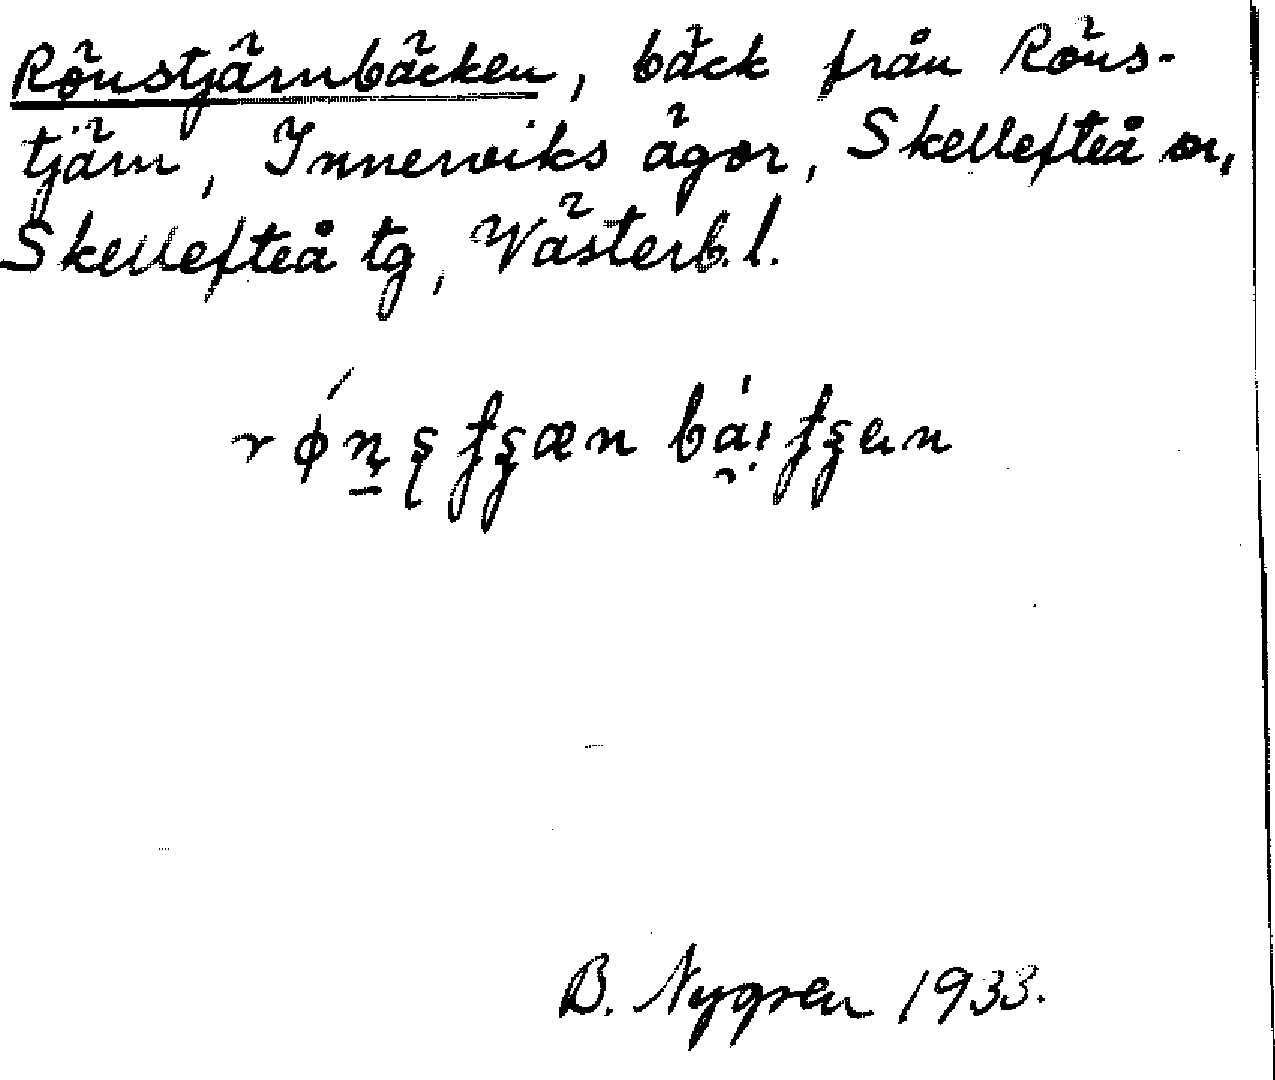 Rönstjärnbäcken, bäck från Röns-
tjärn, Innerviks ägor, Skellefteå sn,
Skellefteå tg, Västerb. l.
B. Nygren 1933.